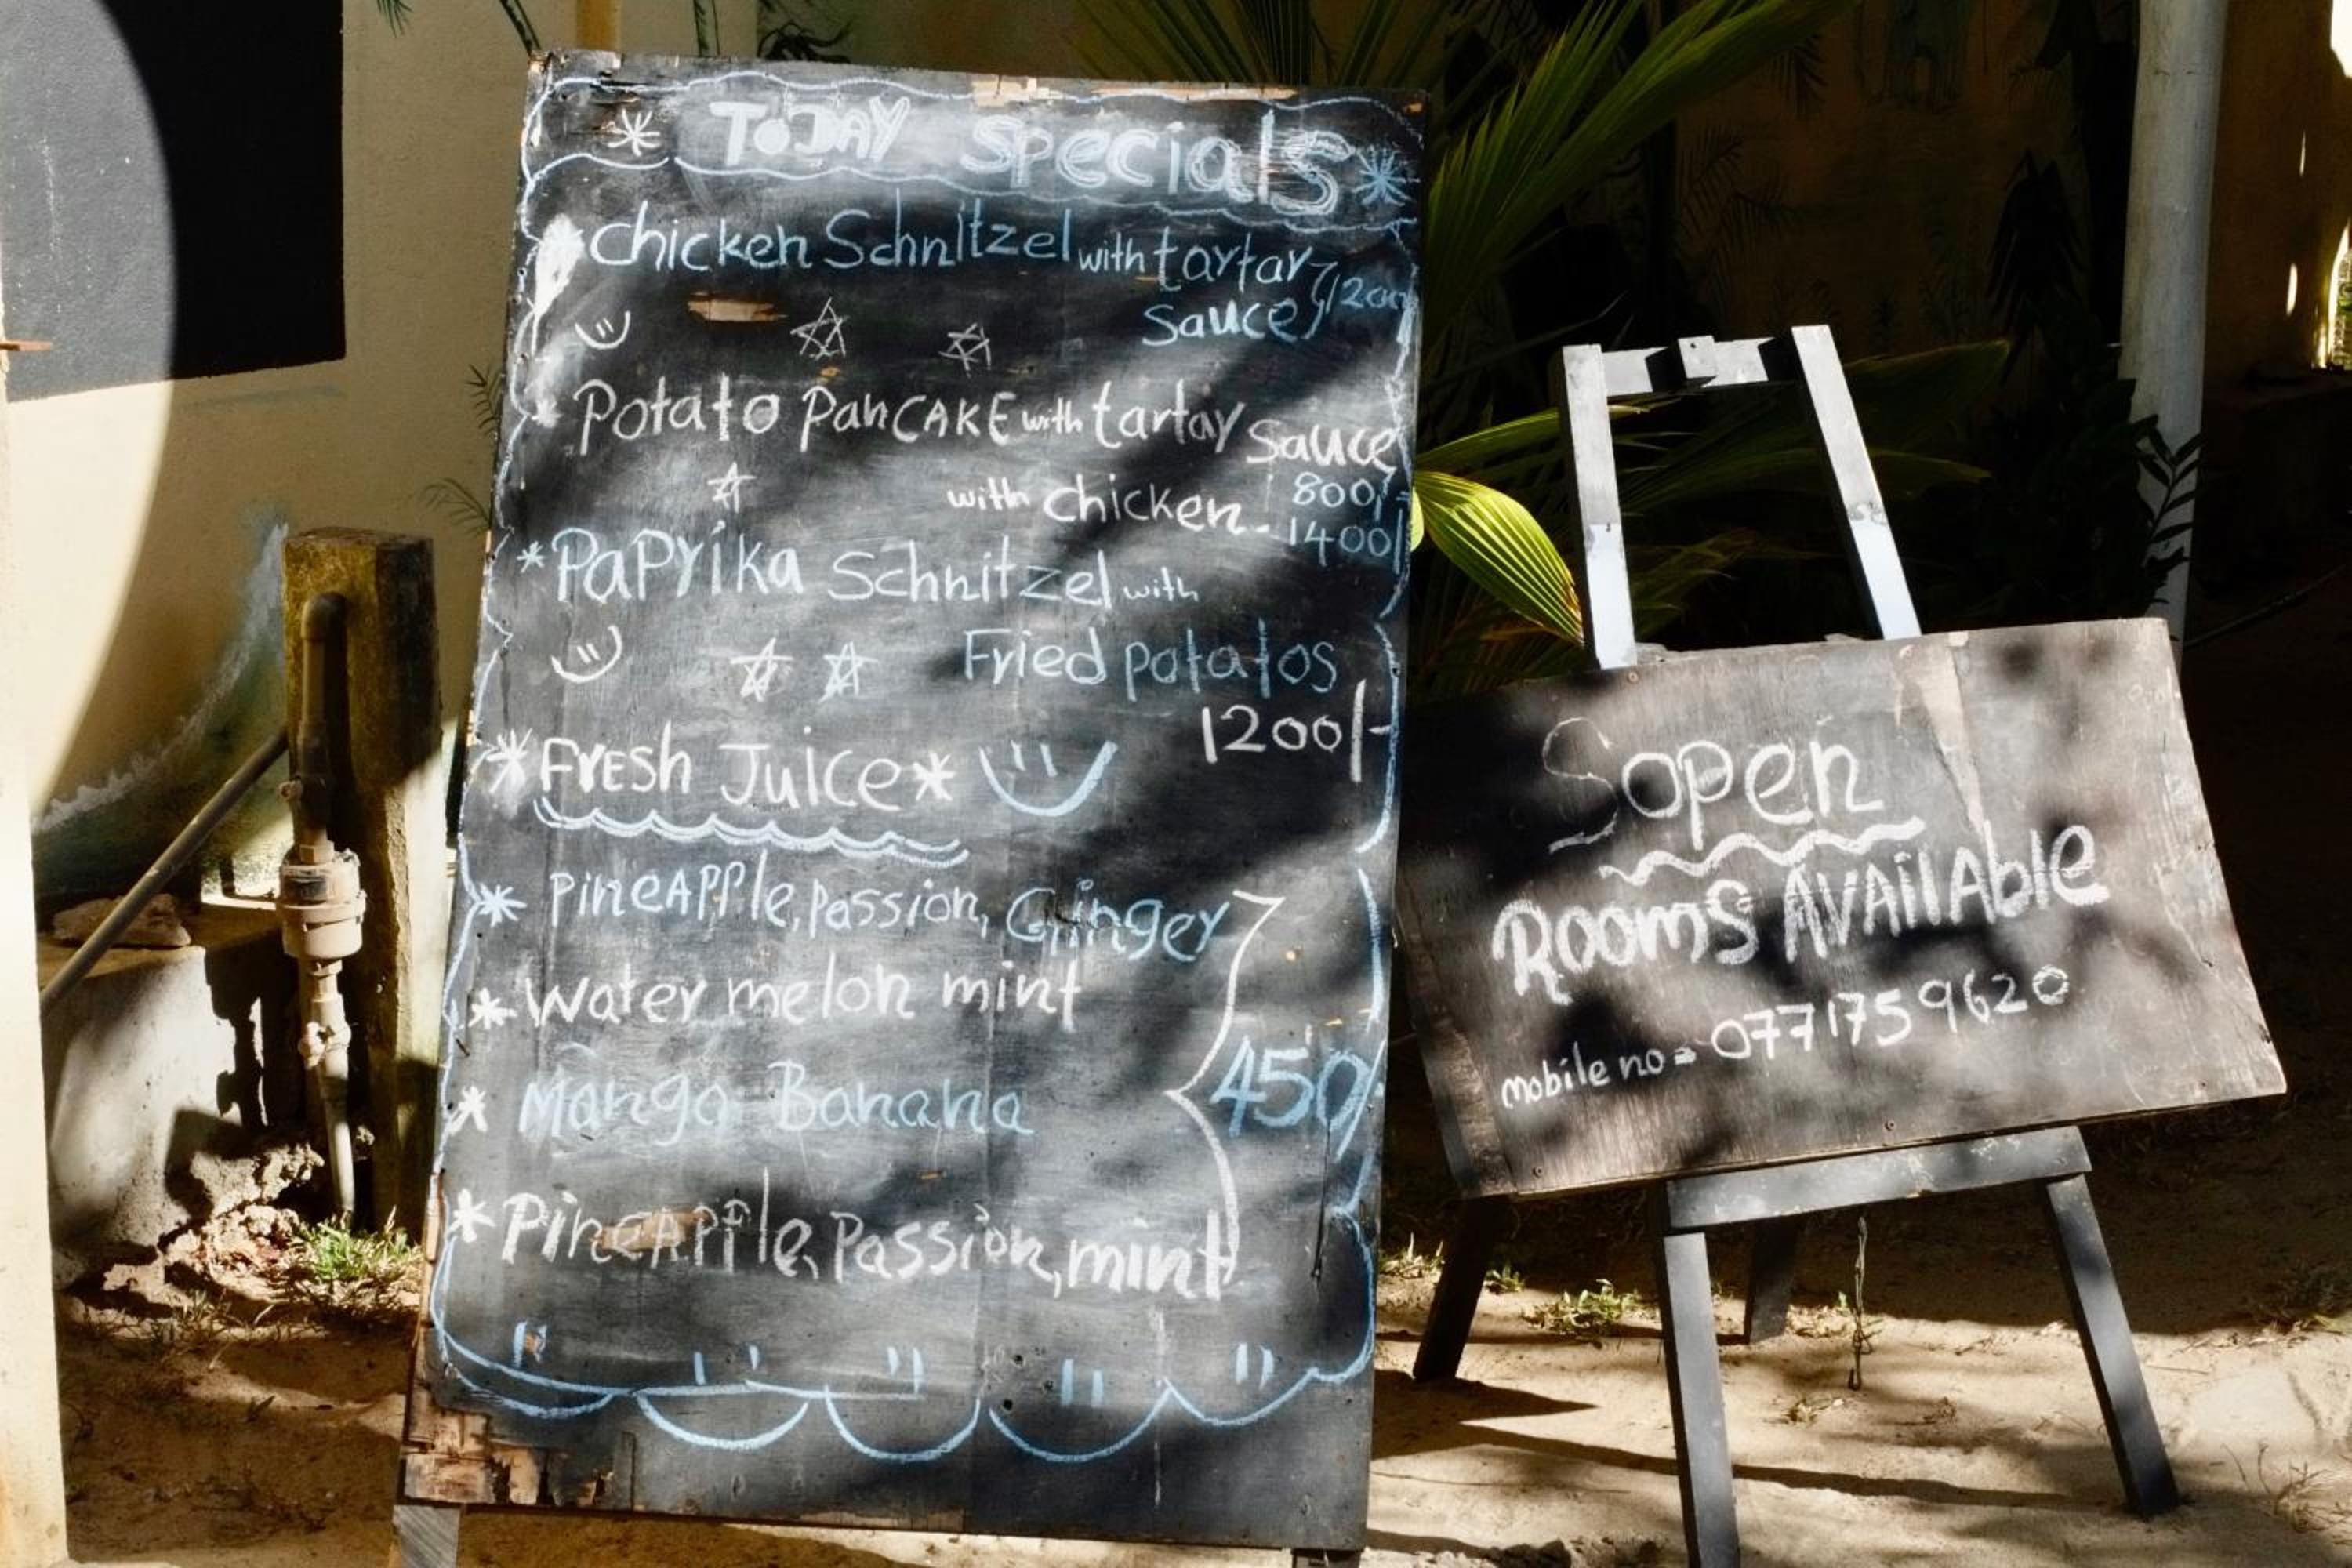 TODAY Specials
Chicken Schnitzel with tartar
sauce 1200
Potato PanCAKE with tartar sauce
800/-
with chicken - 1400/-
* PaPrika Schnitzel with
Fried potatos
1200/-
* FrESh Juice *
* PineAPPle, Passion, Ginger
* Water melon mint
* Mango Banana
450/-
* PineAPPle, Passion, mint
Sopen
RoomS AVAilAble
mobile no = 0771759620